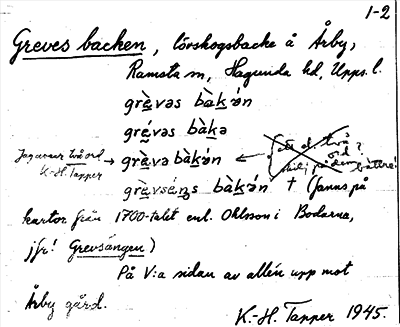 1-2
Greves backen, lövskogsbacke å Årby,
Ramsta sn, Hagunda hd, Upps. l.
grè̱vəs bàḵə́n
gré̱vəs bàḵə
Jag anser två ord K.-H. Tapper → grè̱və bàḵə́n ← ett el. två ord ? bättre!
grè̱vséŋs bàḵə́n † (fanns på
kartor från 1700-talet enl. Ohlsson i Bodarna,
jfr! Grevsängen)
På V:a sidan av allén upp mot
Årby gård.
K.-H. Tapper 1945.